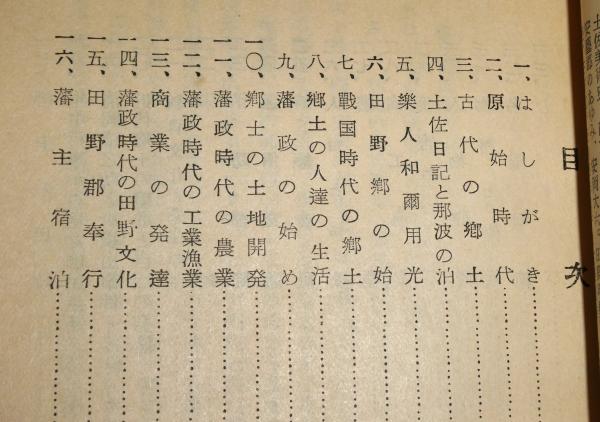 目次
一、はしがき
二、原始時代
三、古代の郷土
四、土佐日記と那波の泊
五、樂人和爾用光
六、田野郷の始
七、戰国時代の郷土
八、郷土の人達の生活
九、藩政の始め
一〇、郷士の土地開発
一一、藩政時代の農業
一二、藩政時代の工業漁業
一三、商業の発達
一四、藩政時代の田野文化
一五、田野郡奉行
一六、藩主宿泊